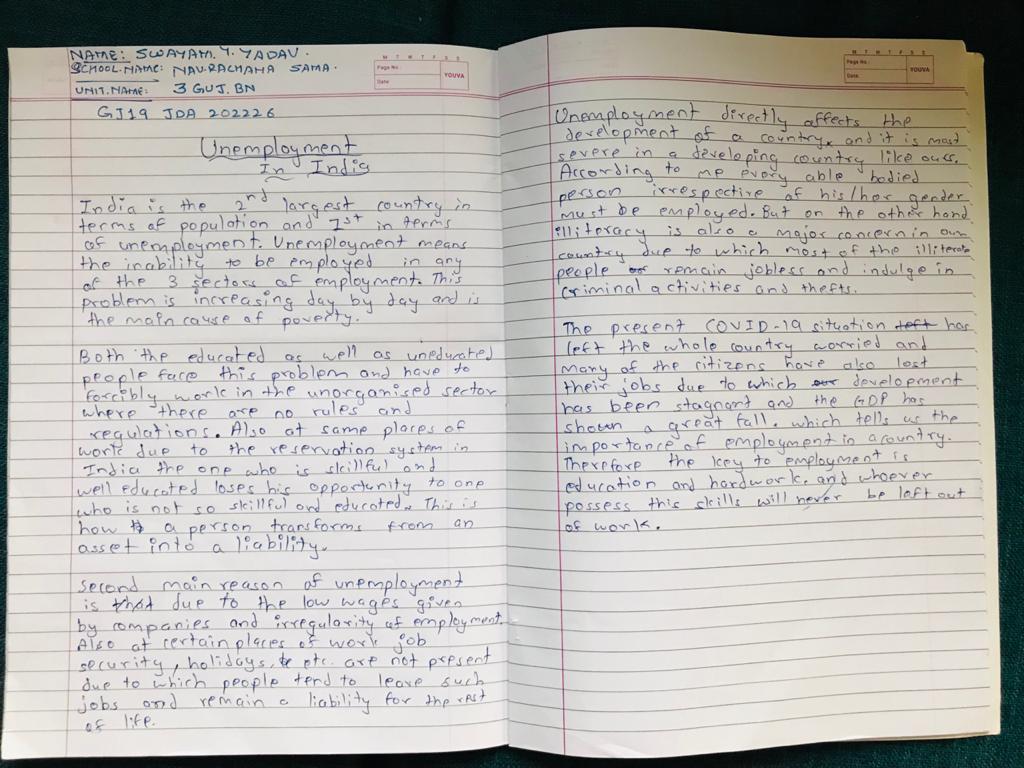 NAME: SWAYAM.Y.YADAV.
SCHOOL.NAME: NAV.RACHANA SAMA.
UNIT.NAME: 3 GUJ.BN
GJ19 JDA 202226
M T W T F S S
Page No.:
Date:
YOUVA
Unemployment
In India
India is the 2nd largest country in
terms of population and 1st in terms
of unemployment. Unemployment means
the inability to be employed in any
of the 3 sectors of employment. This
problem is increasing day by day and is
the main cause of poverty.
Both the educated as well as uneducated
people face this problem and have to
forcibly work in the unorganised sector
where there are no rules and
regulations. Also at some places of
work due to the reservation system in
India the one who is skillful and
well educated loses his opportunity to one
who is not so skillful and educated. This is
how a person transforms from an
asset into a liability.
Second main reason of unemployment
is that due to the low wages given
by companies and irregularity of employment.
Also at certain places of work job
security, holidays, etc. are not present
due to which people tend to leave such
jobs and remain a liability for the rest
of life.
M T W T F S S
Page No.:
Date:
YOUVA
Unemployment directly affects the
development of a country, and it is most
severe in a developing country like ours.
According to me every able bodied
person irrespective of his/her gender
must be employed. But on the other hand
illiteracy is also a major concern in our
country due to which most of the illiterate
people remain jobless and indulge in
criminal activities and thefts.
The present COVID-19 situation left has
left the whole country worried and
many of the citizens have also lost
their jobs due to which our development
has been stagnant and the GDP has
shown a great fall. which tells us the
importance of employment in a country.
Therefore the key to employment is
education and hardwork. and whoever
possess this skills will never be left out
of work.